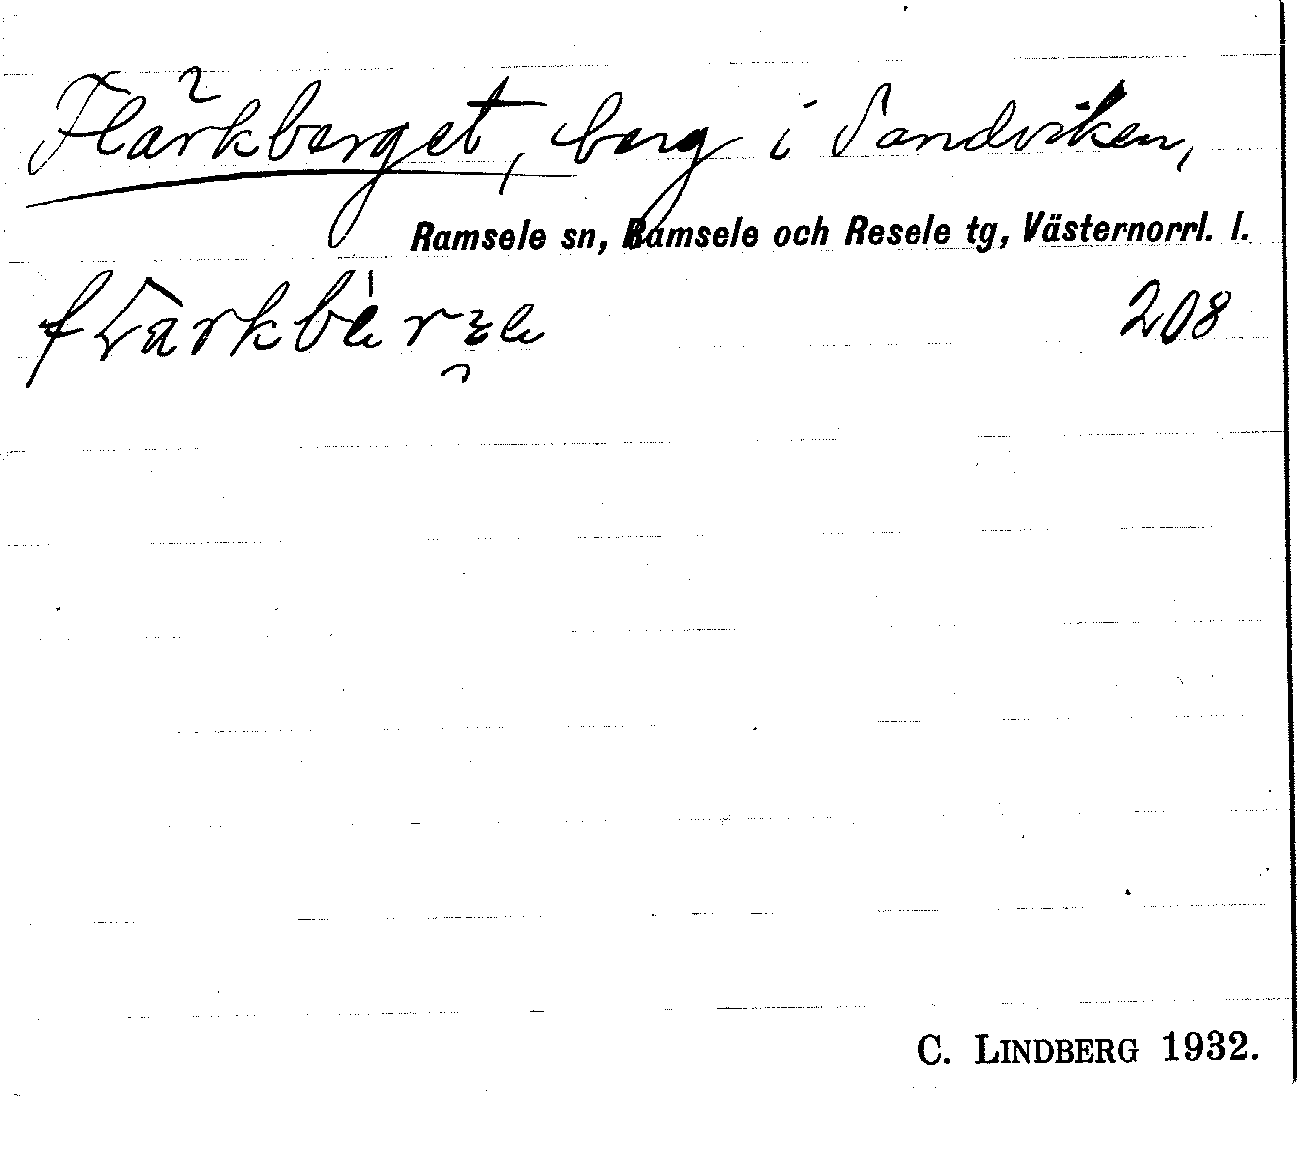 Flärkberget, berg i Sandviken,
Ramsele sn, Ramsele och Resele tg, Västernorrl. l.
208
C. LINDBERG 1932.